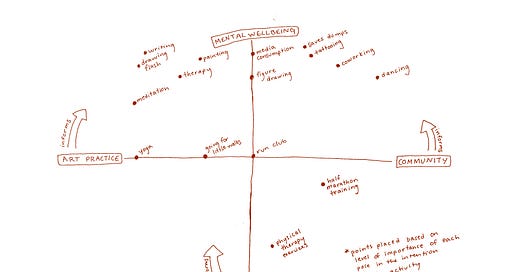 MENTAL WELLBEING
writing
drawing
flash
painting
therapy
meditation
media
consumption
figure
drawing
saves dumps
tattooing
coworking
dancing
informs
informs
ART PRACTICE
yoga
going for
little walks
run club
COMMUNITY
half
marathon
training
physical
therapy
exercises
*points placed based on
level of importance of each
pole in the intention
activity